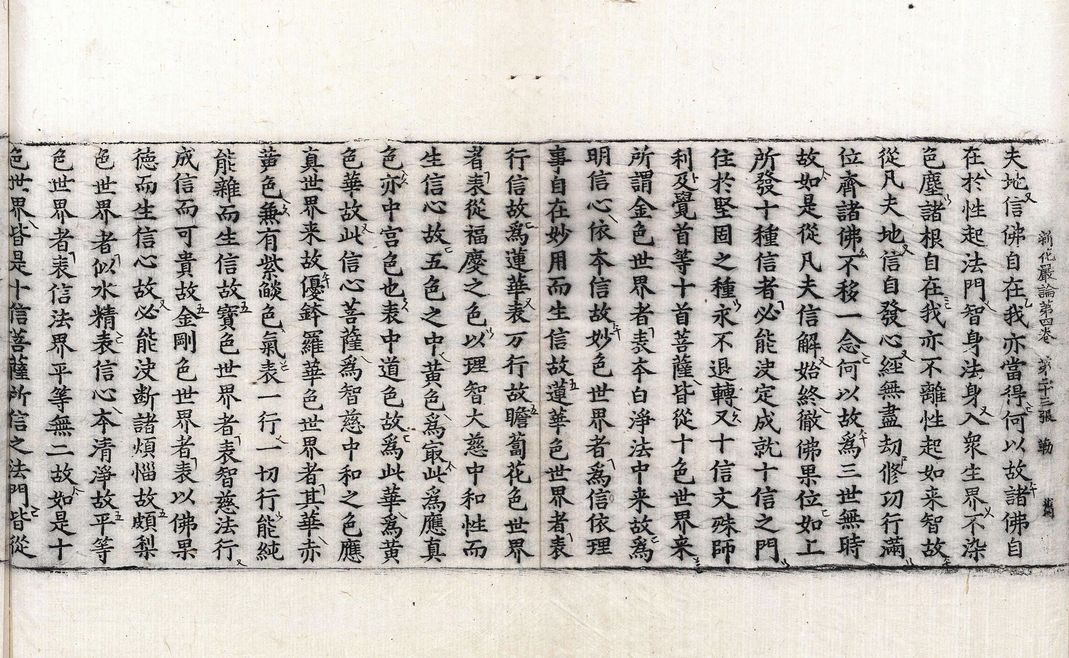 新花嚴論第四卷 第二十三張 勒
夫地信佛自在我亦當得何以故諸佛自
在於性起法門智身法身入衆生界不染
色塵諸根自在我亦不離性起如来智故
從凡夫地信自發心經無盡劫修功行滿
位齊諸佛不移一念何以故為三世無時
故如是從凡夫信解始終徹佛果位如上
所發十種信者必能決定成就十信之門
住於堅固之種永不退轉又十信文殊師
利及覺首等十首菩薩皆從十色世界来
所謂金色世界者表夲白淨法中来故為
明信心依夲信故妙色世界者為信依理
事自在妙用而生信故蓮華色世界者表
行信故為蓮華表万行故瞻蔔花色世界
者表從福慶之色以理智大慈中和性而
生信心故五色之中黄色為㝡此為應真
色亦中宮色也表中道色故為此華為黄
色華故此信心菩薩為智慈中和之色應
真世界来故優鉢羅華色世界者其華亦
黄色兼有紫𦦨色氣表一行一切行能純
能雜而生信故寶色世界者表智慈法行
成信而可貴故金剛色世界者表以佛果
徳而生信心故必能決断諸煩惱故頗梨
色世界者似水精表信心夲清淨故平等
色世界者表信法界平等無二故如是十
色世界皆是十信菩薩所信之法門皆從